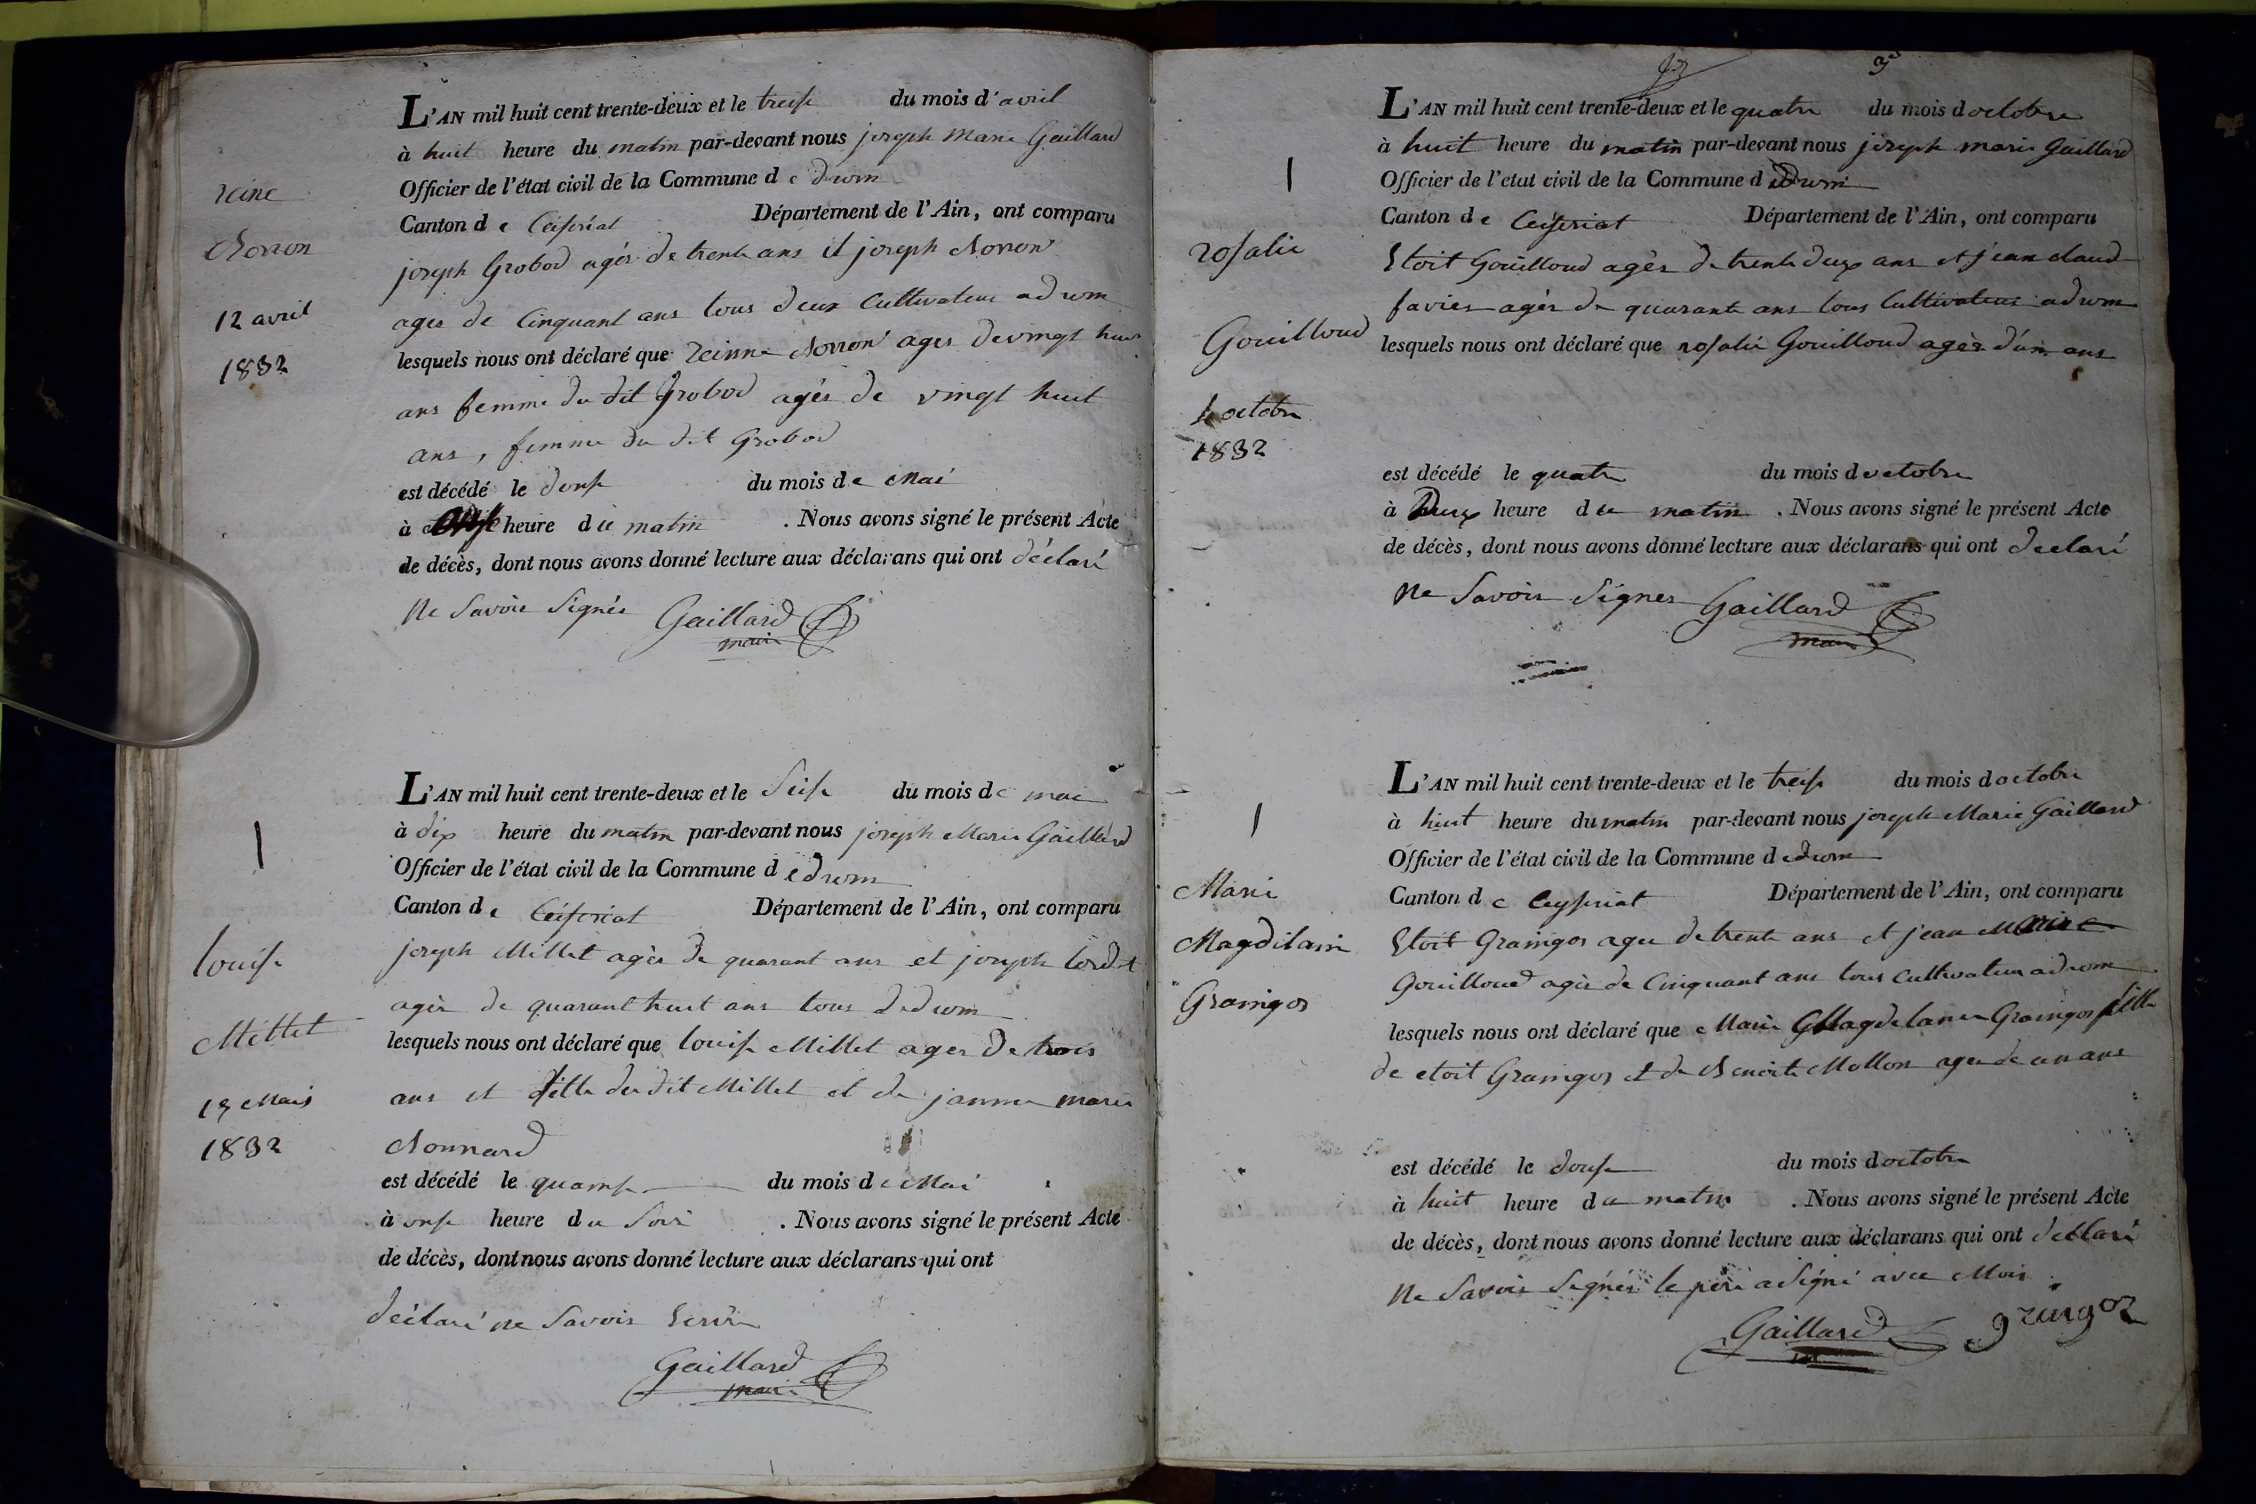 reine
Nonon
12 avril
1832
L'AN mil huit cent trente-deux et le treise du mois d'avril
à huit heure du matin par-devant nous joseph Marie Gaillard
Officier de l'état civil de la Commune de drom
Canton de Ceiseriat Département de l'Ain, ont comparu
joseph Grobod agés de trente ans et joseph Nonon
ages de Cinquant ans tous deux Cultivateur a drom
lesquels nous ont déclaré que Reinne Nonon ages de vingt huit
ans femme du dit Grobod agés de vingt huit
ans, femme du dit Grobod
est décédé le douse du mois de Mai
à onse heure du matin . Nous avons signé le présent Acte
de décès, dont nous avons donné lecture aux déclarans qui ont déclaré
Ne Savoir Signés Gaillard
maire
louise
Millet
Mais
1832
L'AN mil huit cent trente-deux et le Seise du mois de mai
à dix heure du matin par-devant nous joseph Marie Gaillard
Officier de l'état civil de la Commune de drom
Canton de Ceiseriat Département de l'Ain, ont comparu
joseph Millet agés de quarant ans et joseph
agés de quarant huit ans tous d drom
lesquels nous ont déclaré que louise Millet ages de trois
ans et fille du dit Millet et de janne marie
Nonnard
est décédé le quainse du mois de Mai
à onse heure du Soir . Nous avons signé le présent Acte
de décès, dont nous avons donné lecture aux déclarans qui ont
déclaré ne Savoir Ecrire
Gaillard
maire
3
rosalie
Gouilloud
4 octobre
1832
L'AN mil huit cent trente-deux et le quatre du mois doctobre
à huit heure du matin par-devant nous joseph marie Gaillard
Officier de l'état civil de la Commune de Drom
Canton de Ceiseriat Département de l'Ain, ont comparu
Etoit Gouilloud agès de trente deux ans et jean claud
favier agés de quarante ans tous Cultivateur a drom
lesquels nous ont déclaré que rosalie Gouilloud agès d'un ans
est décédé le quatre du mois doctobre
à Deux heure du matin . Nous avons signé le présent Acte
de décès, dont nous avons donné lecture aux déclarans qui ont declaré
Ne Savoir Signer Gaillard
maire
Marie
Magdilaine
Graingos
L'AN mil huit cent trente-deux et le treise du mois doctobre
à huit heure du matin par-devant nous joseph Marie Gaillard
Officier de l'état civil de la Commune de drom
Canton de Ceyseriat Département de l'Ain, ont comparu
Etoit Graingos agee de trente ans et jean Marie
Gouilloud agés de Cinquant ans tous cultivateur a drom
lesquels nous ont déclaré que Marie Magdelaine Graingos fille
de etoit Graingos et de Benoite Mollon agee de un ans
est décédé le douse du mois doctobre
à huit heure du matin . Nous avons signé le présent Acte
de décès, dont nous avons donné lecture aux déclarans qui ont declaré
Ne Savoir Signés le père a Signé avec Moi
Gaillard gringoz